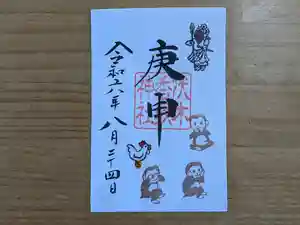 庚申
伏木
神社
令和六年八月二十四日